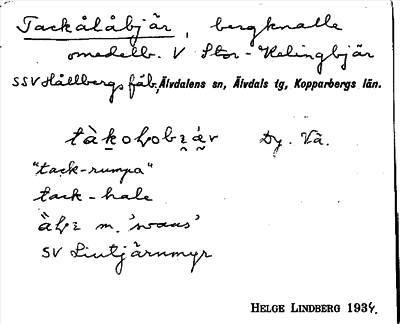 Tackålåbjär, bergknalle
omedelb. V Stor-Helingbjär
SSV Hållbergs fäb., Älvdalens sn, Älvdals tg, Kopparbergs län.
Dy. Vä.
"tack-rumpa"
tack-hale
m. 'svans'
SV Liutjärnmyr
HELGE LINDBERG 1934.